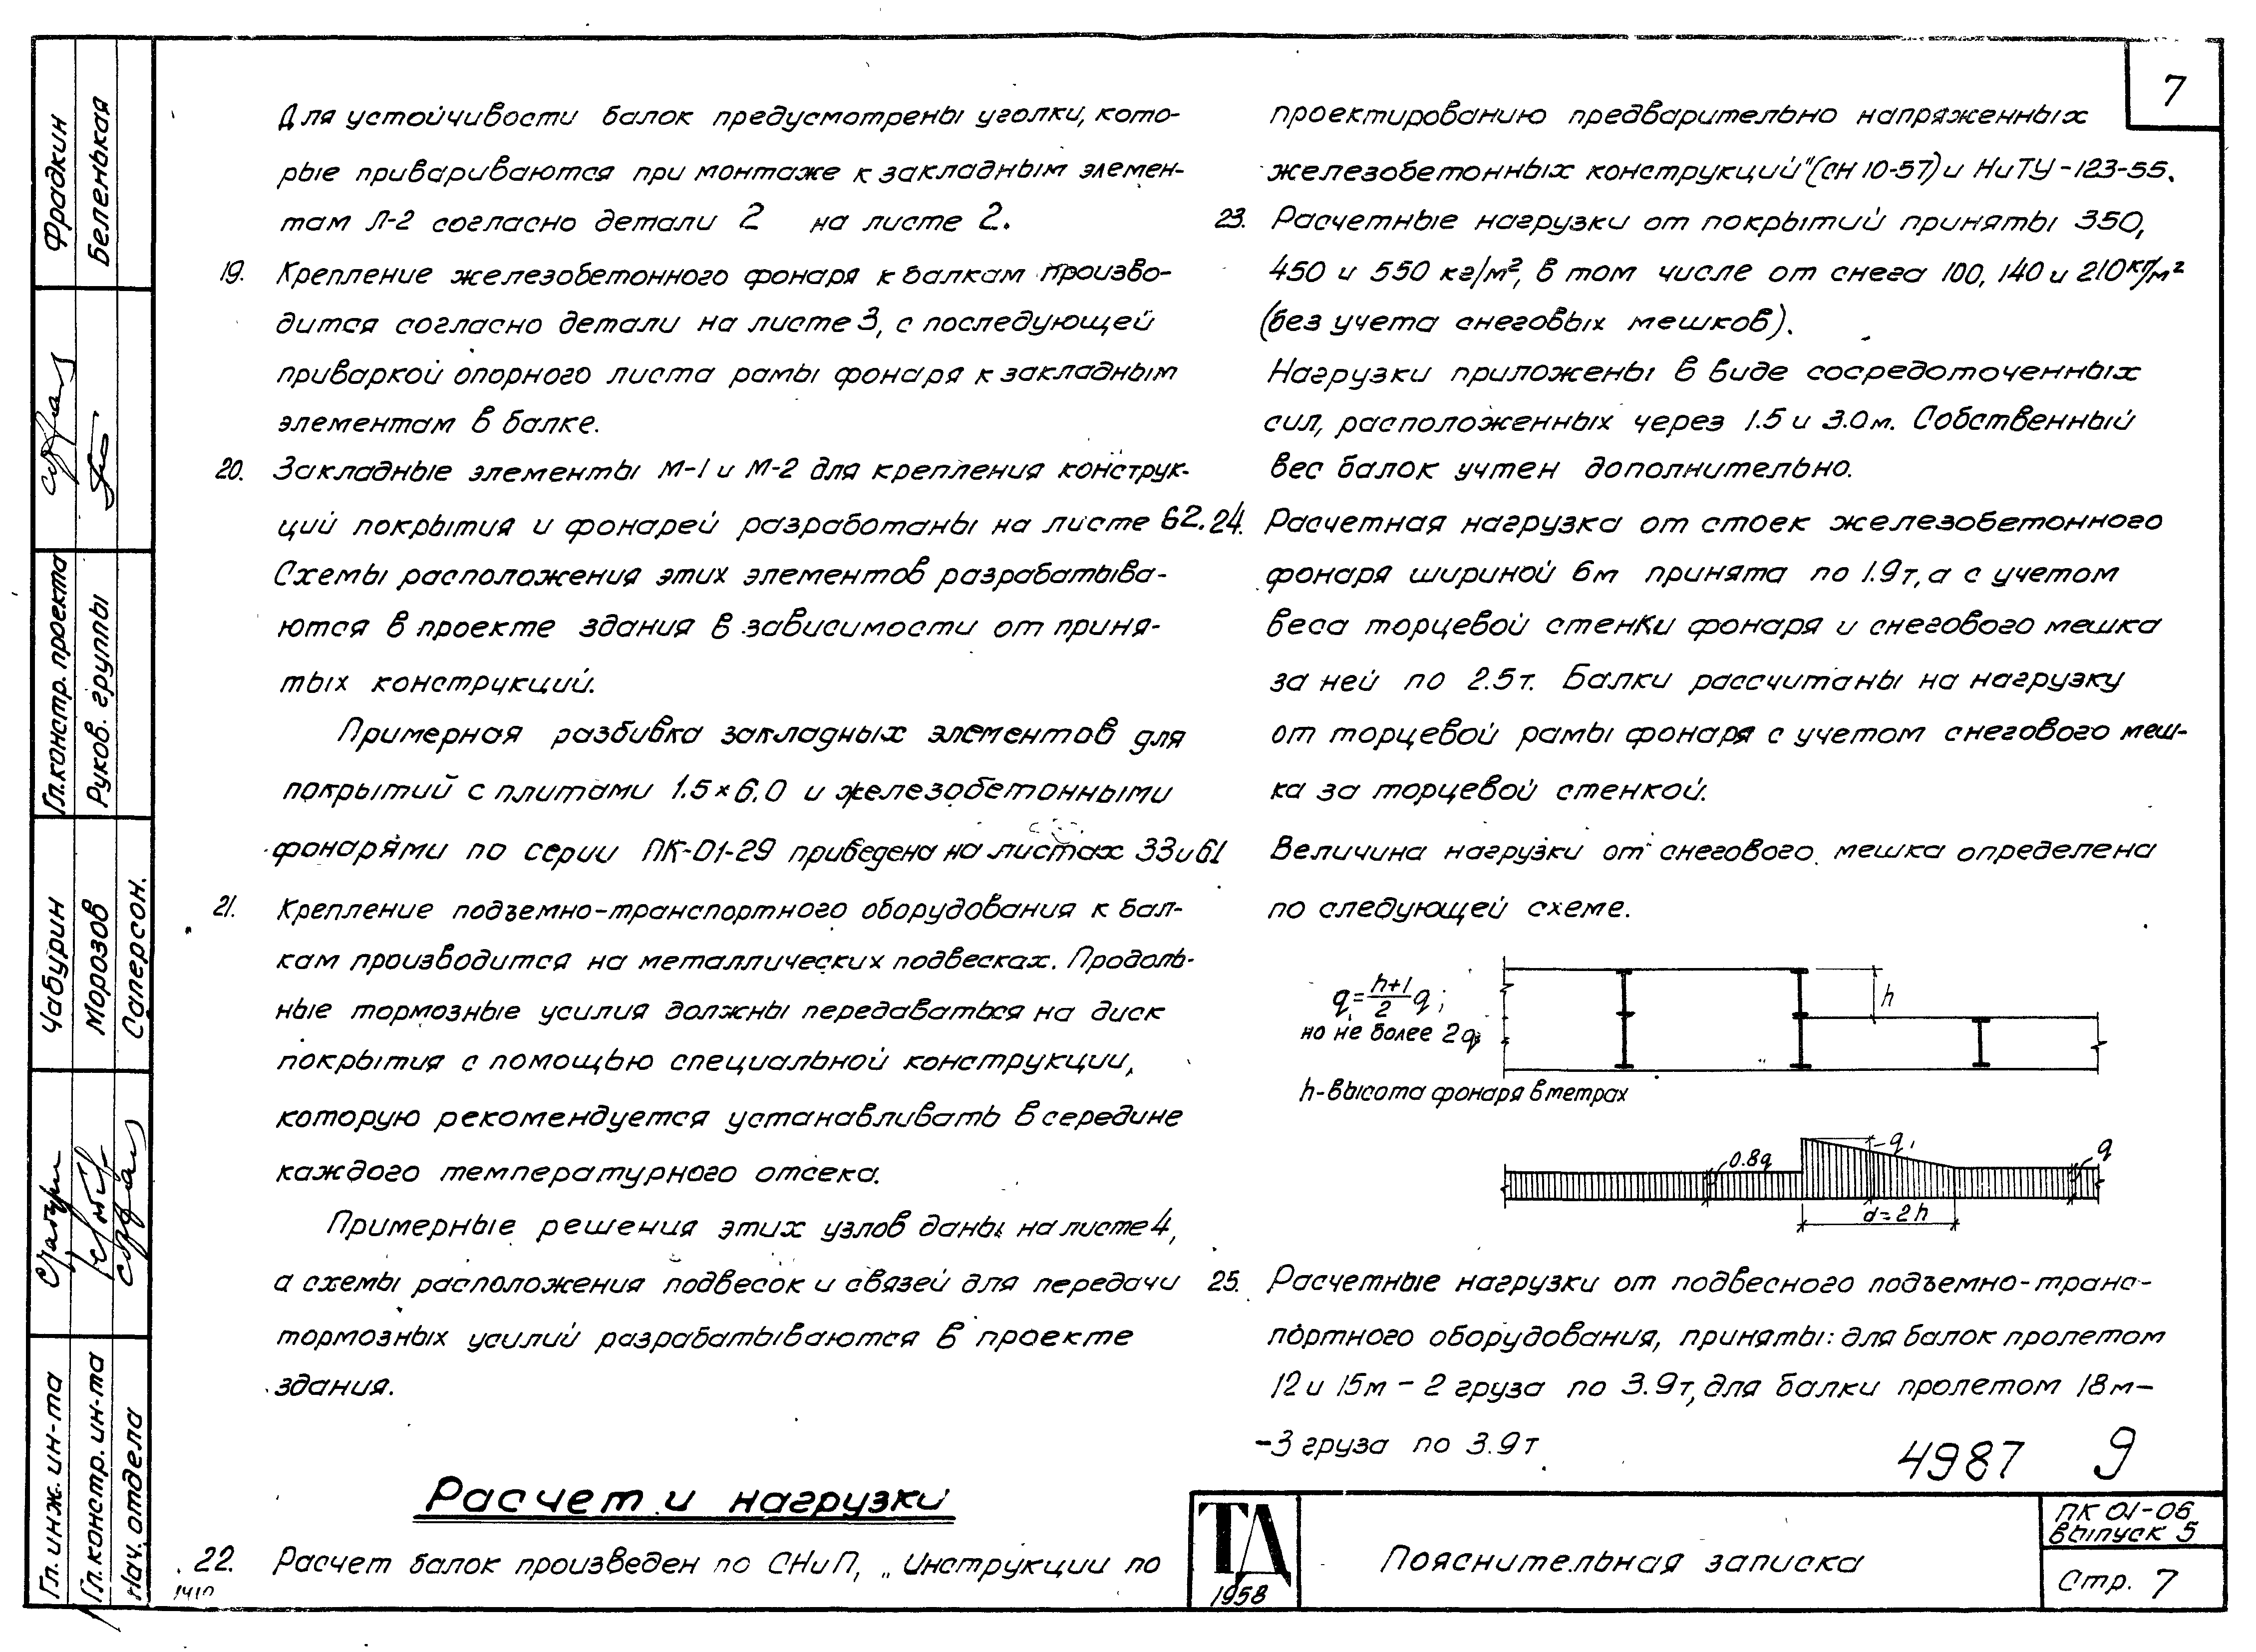 7
Для устойчивости балок предусмотрены уголки, кото-
рые привариваются при монтаже к закладным элемен-
там Л-2 согласно детали 2 на листе 2.
19. Крепление железобетонного фонаря к балкам произво-
дится согласно детали на листе 3, с последующей
приваркой опорного листа рамы фонаря к закладным
элементам в балке.
20. Закладные элементы М-1 и М-2 для крепления конструк-
ций покрытия и фонарей разработаны на листе 62.
Схемы расположения этих элементов разрабатыва-
ются в проекте здания в зависимости от приня-
тых конструкций.
Примерная разбивка закладных элементов для
покрытий с плитами 1.5×6.0 и железобетонными
фонарями по серии ПК-01-29 приведена на листах 33 и 61
21. Крепление подъемно-транспортного оборудования к бал-
кам производится на металлических подвесках. Продоль-
ные тормозные усилия должны передаваться на диск
покрытия с помощью специальной конструкции,
которую рекомендуется устанавливать в середине
каждого температурного отсека.
Примерные решения этих узлов даны на листе 4,
а схемы расположения подвесок и связей для передачи
тормозных усилий разрабатываются в проекте
здания.
Расчет и нагрузки
22. Расчет балок произведен по СНиП, „Инструкции по
1410
проектированию предварительно напряженных
железобетонных конструкций" (СН 10-57) и НиТУ-123-55.
23. Расчетные нагрузки от покрытий приняты 350,
450 и 550 кг/м², в том числе от снега 100, 140 и 210 кг/м²
(без учета снеговых мешков).
Нагрузки приложены в виде сосредоточенных
сил, расположенных через 1.5 и 3.0 м. Собственный
вес балок учтен дополнительно.
24. Расчетная нагрузка от стоек железобетонного
фонаря шириной 6м принята по 1.9т, а с учетом
веса торцевой стенки фонаря и снегового мешка
за ней по 2.5т. Балки рассчитаны на нагрузку
от торцевой рамы фонаря с учетом снегового меш-
ка за торцевой стенкой.
Величина нагрузки от снегового мешка определена
по следующей схеме.
q₁ = (h+1)/2 q;
но не более 2q
h
h-высота фонаря в метрах
0.8q
q₁
q
d=2h
25. Расчетные нагрузки от подвесного подъемно-транс-
портного оборудования, приняты: для балок пролетом
12 и 15м - 2 груза по 3.9т, для балки пролетом 18м-
-3 груза по 3.9т
4987 9
ТД
1958
Пояснительная записка
ПК 01-06
выпуск 5
Стр. 7
Фрадкин
Беленькая
Гл.констр. проекта
Руков. группы
Чабурин
Морозов
Саперсон.
Гл. инж. ин-та
Гл. констр. ин-та
Нач. отдела